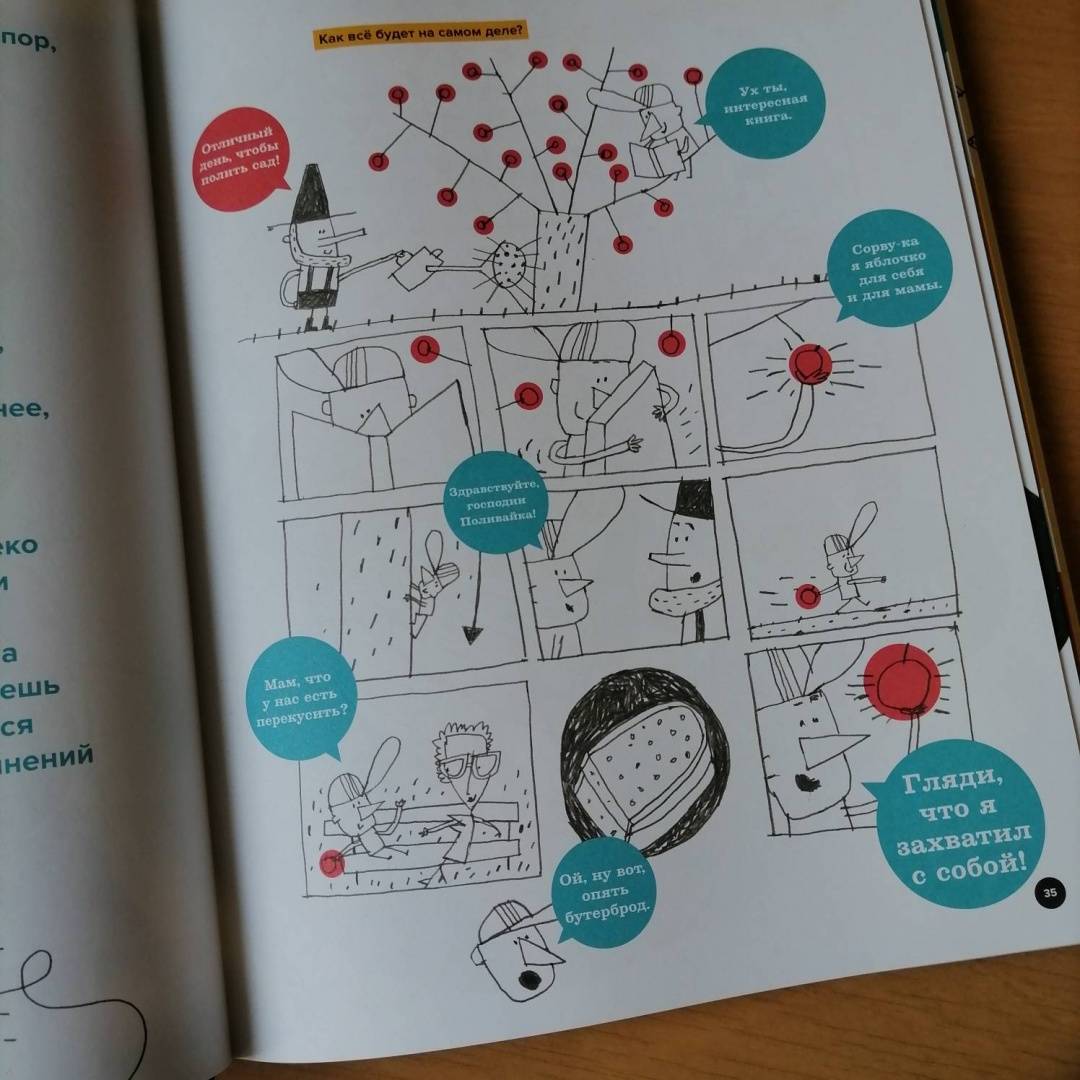 пор,
нее,
еко
и
а
ешь
ся
нений
Как всё будет на самом деле?
Отличный
день, чтобы
полить сад!
Ух ты,
интересная
книга.
Сорву-ка
я яблочко
для себя
и для мамы.
Здравствуйте,
господин
Поливайка!
Мам, что
у нас есть
перекусить?
Ой, ну вот,
опять
бутерброд.
Гляди,
что я
захватил
с собой!
35